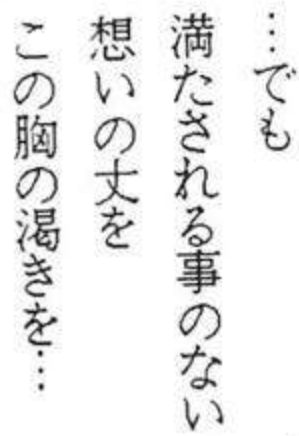 …でも
満たされる事のない
想いの丈を
この胸の渇きを…